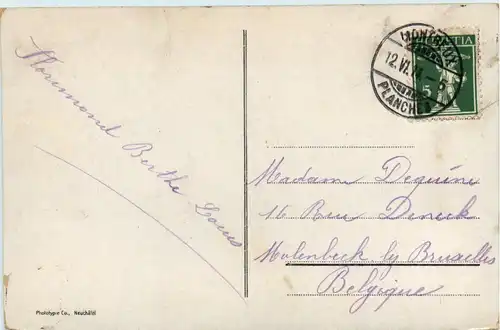 Florimond Berthe Louis
MONTREUX
12.VI.11.-5
PLANCHES
HELVETIA
5
Madame Dequine
16 Rue Deneck
Molenbeck by Bruxelles
Belgique
Phototypie Co., Neuchâtel